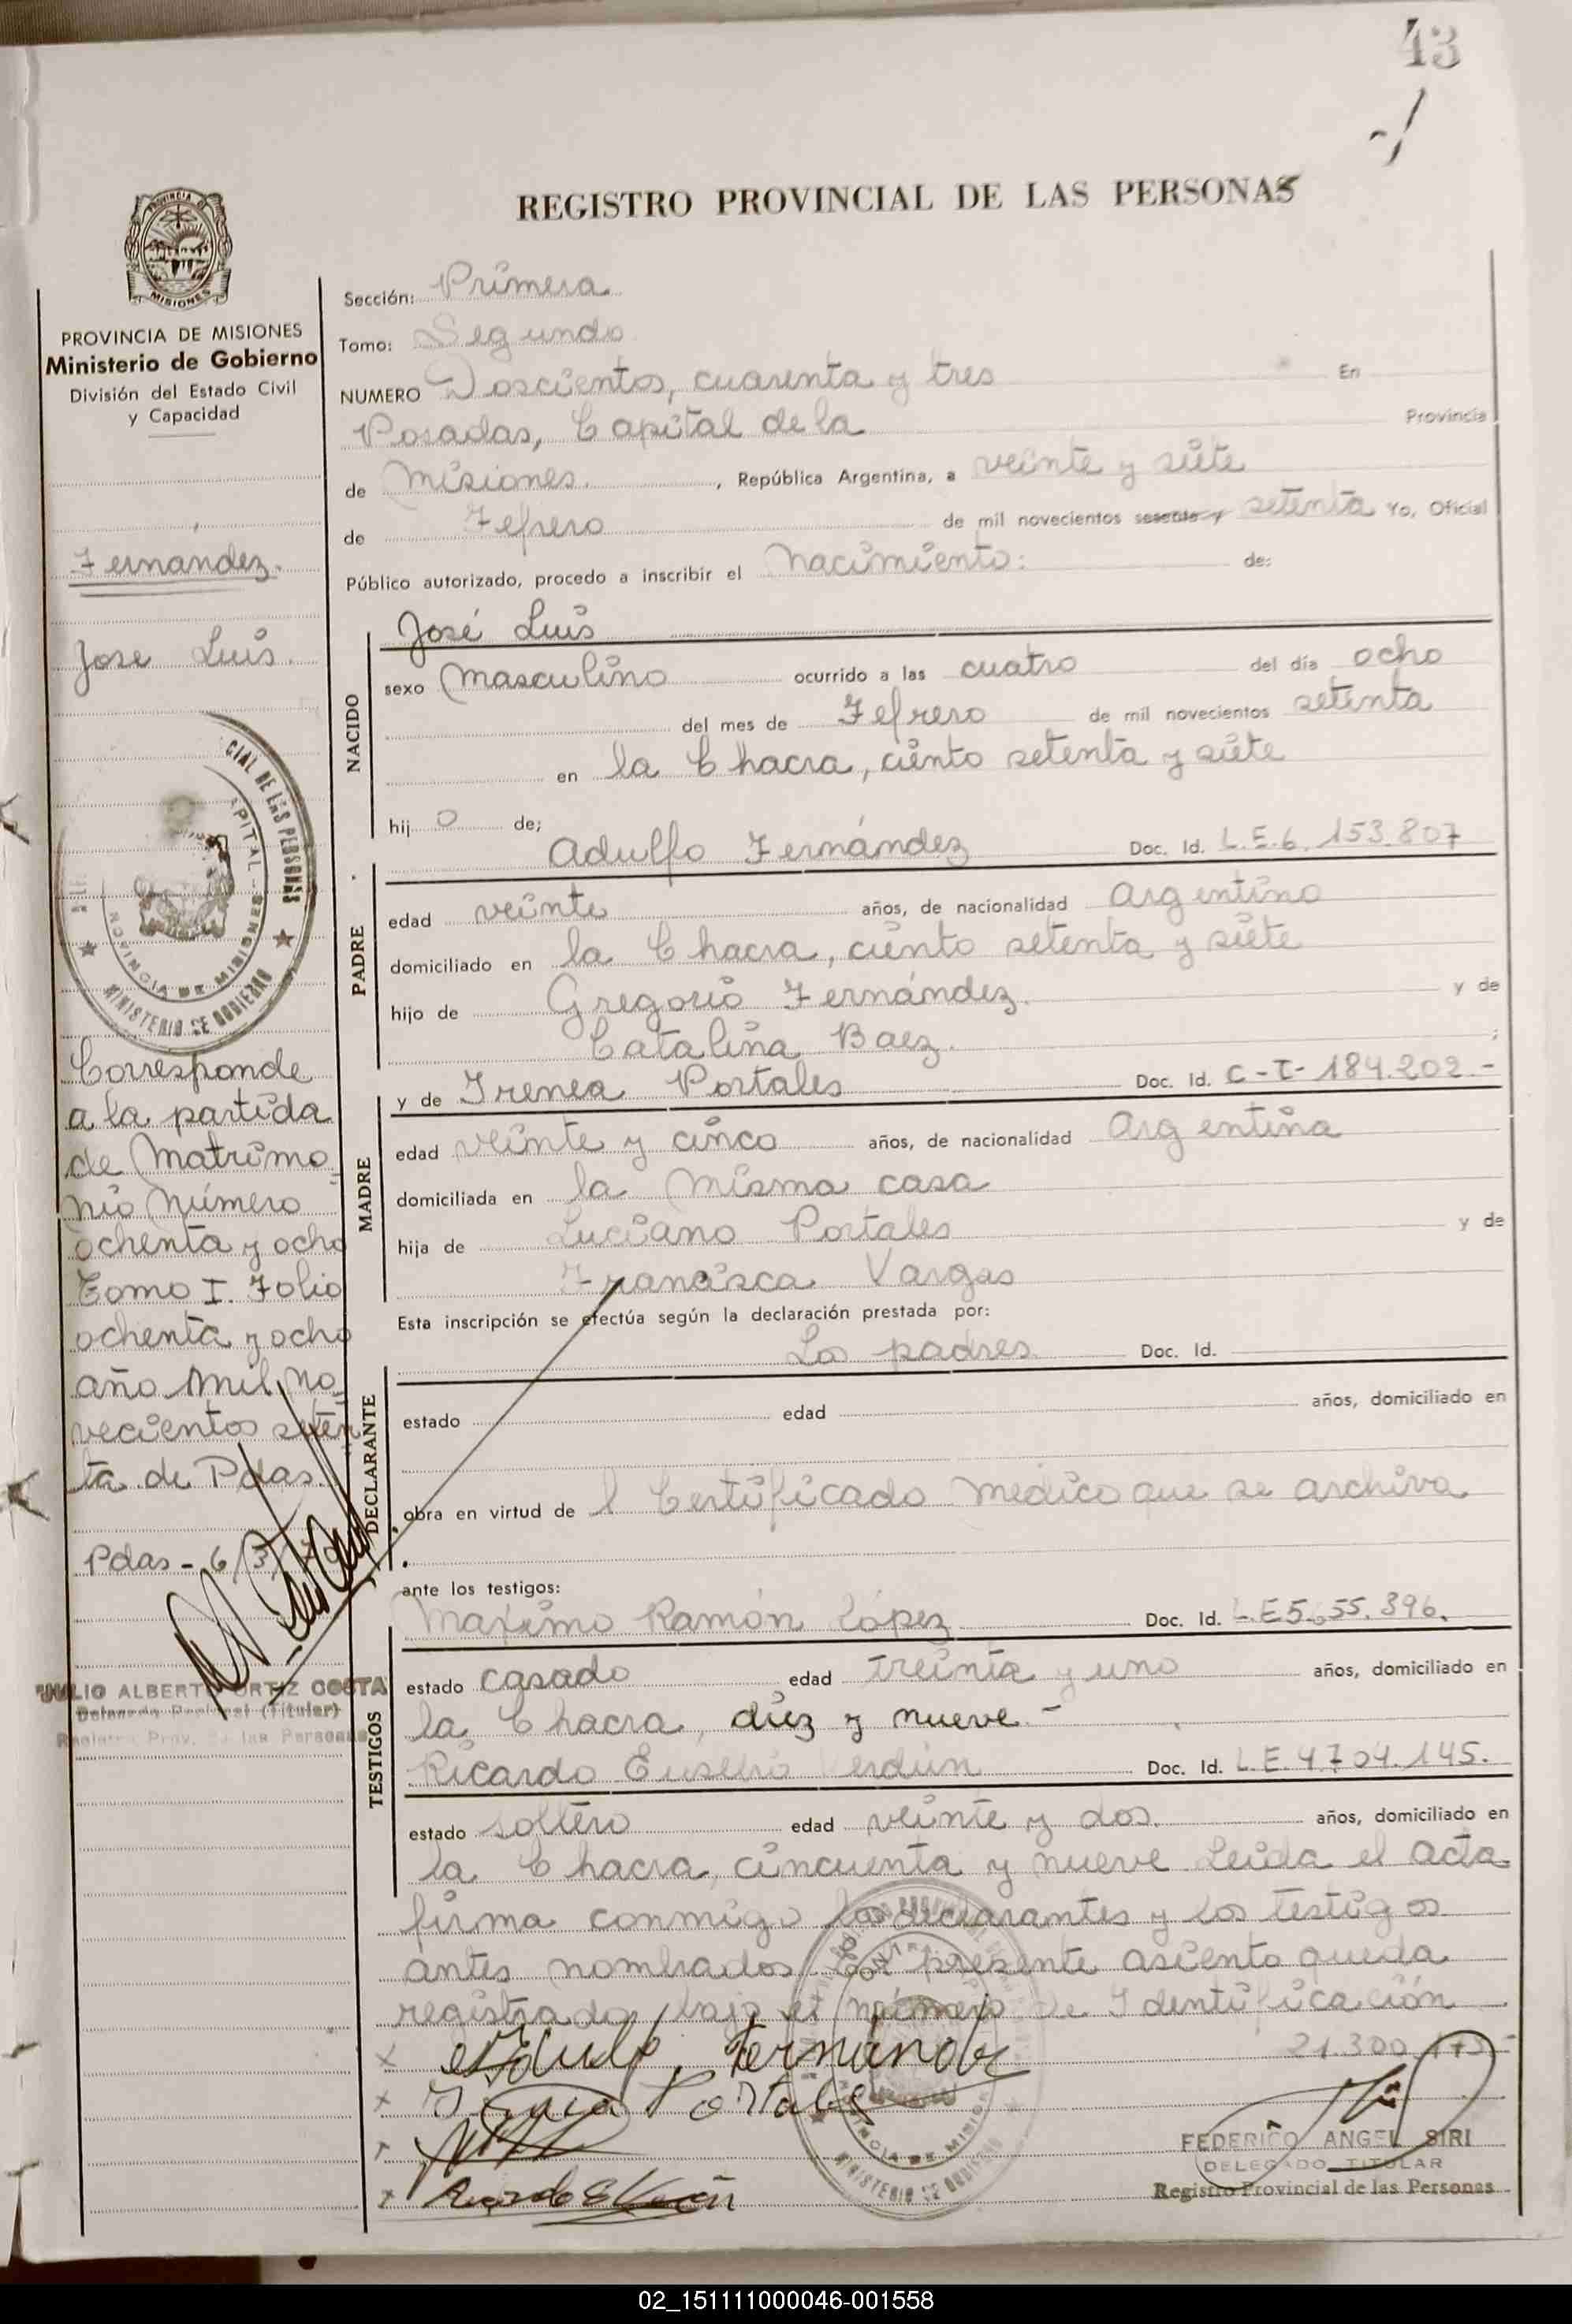 43
REGISTRO PROVINCIAL DE LAS PERSONAS
PROVINCIA DE
MISIONES
PROVINCIA DE MISIONES
Ministerio de Gobierno
División del Estado Civil
y Capacidad
Fernández.
Jose Luis.
CIAL DE LAS PERSONAS
MINISTERIO DE GOBIERNO
Corresponde
a la partida
de Matrimo
nio Número
ochenta y ocho
Tomo I. Folio
ochenta y ocho
año Mil No
vecientos seten
ta de Pdas.
Pdas - 6/3/70
JULIO ALBERTO ORTIZ COSTA
Delegado Regional (Titular)
Registro Prov. de las Personas
Sección: Primera
Tomo: Segundo
NUMERO Doscientos, cuarenta y tres En
Posadas, Capital de la Provincia
de Misiones. , República Argentina, a veinte y siete
de Febrero de mil novecientos sesenta y setenta Yo, Oficial
Público autorizado, procedo a inscribir el Nacimiento: de:
NACIDO
José Luis
sexo Masculino ocurrido a las cuatro del día ocho
del mes de Febrero de mil novecientos setenta
en la Chacra, ciento setenta y siete
hij o de;
PADRE
Adulfo Fernández Doc. Id. L.E.6.153.807
edad veinte años, de nacionalidad Argentino
domiciliado en la Chacra, ciento setenta y siete
hijo de Gregorio Fernández. y de
Catalina Baez.
y de Irenea Portales Doc. Id. C-I-184.202.-
MADRE
edad veinte y cinco años, de nacionalidad Argentina
domiciliada en la Misma casa
hija de Luciano Portales y de
Francisca Vargas
Esta inscripción se efectúa según la declaración prestada por:
DECLARANTE
Los padres Doc. Id.
estado edad años, domiciliado en
obra en virtud de l Certificado Medico que se archiva
ante los testigos:
TESTIGOS
Maximo Ramón López Doc. Id. L.E5. 55.396.
estado casado edad treinta y uno años, domiciliado en
la Chacra, diez y nueve.-
Ricardo Eusebio Verdún Doc. Id. L.E.4.704.145.
estado soltero edad veinte y dos. años, domiciliado en
la Chacra, cincuenta y nueve Leida el Acta
firma conmigo los declarantes y los testigos
antes nombrados. El presente asiento queda
registrado bajo el número de Identificación
21.300.
x Adulfo Fernández
x Irenea Portales
x
x Ricardo E Verdún
MINISTERIO DE GOBIERNO
FEDERICO ANGEL SIRI
DELEGADO TITULAR
Registro Provincial de las Personas
02_151111000046-001558